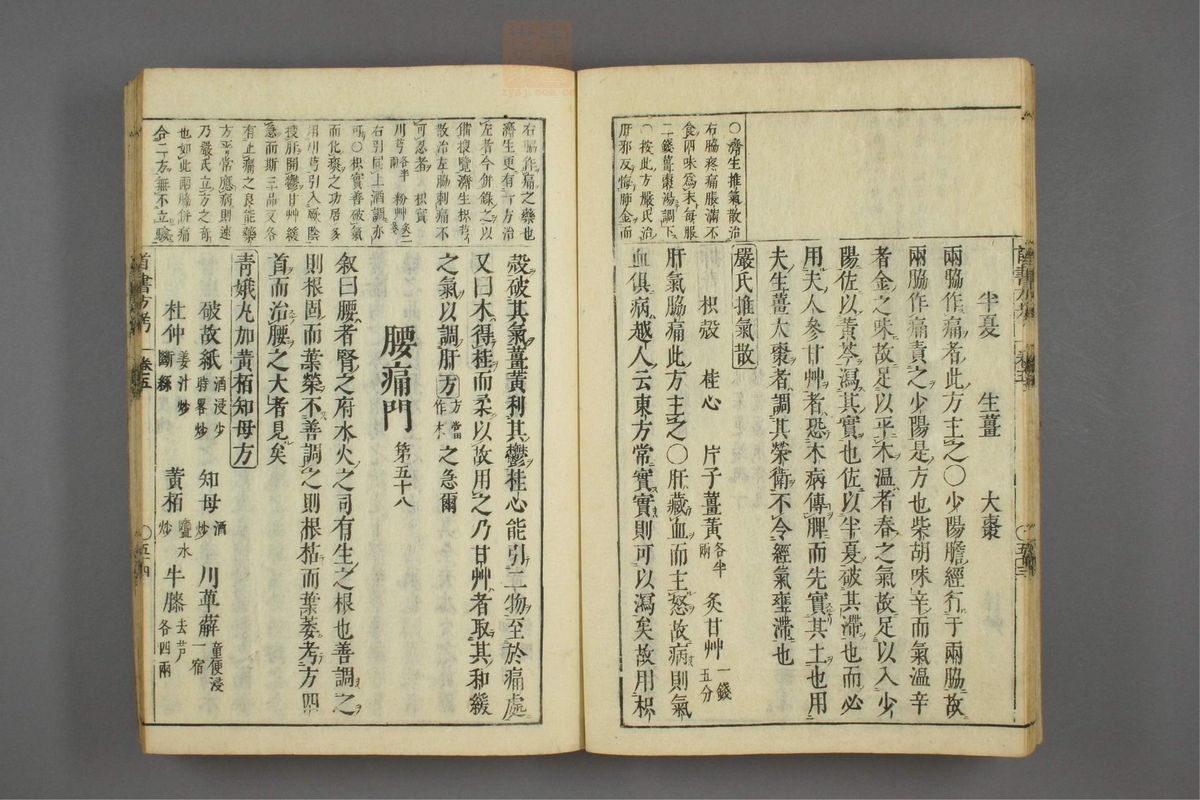 半夏 生薑 大棗
兩脇作痛者此方主之○少陽膽經行于兩脇故
兩脇作痛責之少陽是方也柴胡味辛而氣溫辛
者金之味故足以平木溫者春之氣故足以入少
陽佐以黃芩瀉其實也佐以半夏破其滯也而必
用夫人參甘艸者恐木病傳脾而先實其土也用
夫生薑大棗者調其榮衛不令經氣壅滯也
嚴氏推氣散
枳殼 桂心 片子薑黃各半兩 炙甘艸一錢五分
肝氣脇痛此方主之○肝藏血而主怒故病則氣
血俱病越人云東方常實實則可以瀉矣故用枳
○濟生推氣散治
右脇疼痛脹滿不
食四味為末每服
二錢薑棗湯調下
○按此方嚴氏治
肝邪反侮肺金而
首書方考 卷五 ○五十三
殼破其氣薑黃利其鬱桂心能引二物至於痛處
又曰木得桂而柔以故用之乃甘艸者取其和緩
之氣以調肝方方當作木之急爾
腰痛門 第五十八
叙曰腰者腎之府水火之司有生之根也善調之
則根固而葉榮不善調之則根枯而葉萎考方四
首而治腰之大者見矣
青娥丸加黃栢知母方
破故紙酒浸少時畧炒 知母酒炒 川萆薢童便浸一宿
杜仲姜汁炒斷絲 黃栢鹽水炒 牛膝去芦各四兩
右脇作痛之藥也
濟生更有一方治
左者今併錄之以
備搜覽濟生枳芎
散治左脇刺痛不
可忍者 枳實
川芎各半兩 粉艸炙二錢
右引同上酒調亦
可○枳實善破氣
而化痰之功居多
用川芎引入厥陰
搜肝開鬱甘艸緩
急而斯三品又各
有止痛之良能藥
方平常應病則速
乃嚴氏立方之奇
也如此兩脇併痛
合二方無不立驗
首書方考 卷五 ○五十四